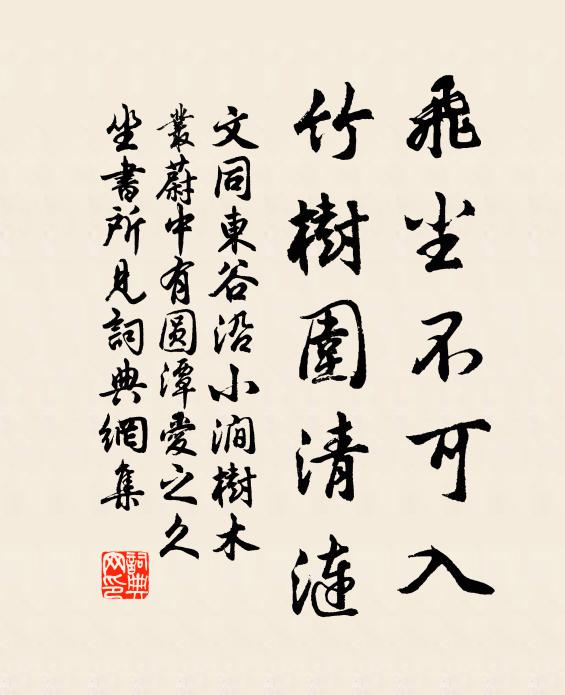 飛尘不可入
竹樹圍清漣
文同東谷沿小澗樹木
叢蔚中有圆潭愛之久
坐書所見詞典網集
詞典网印